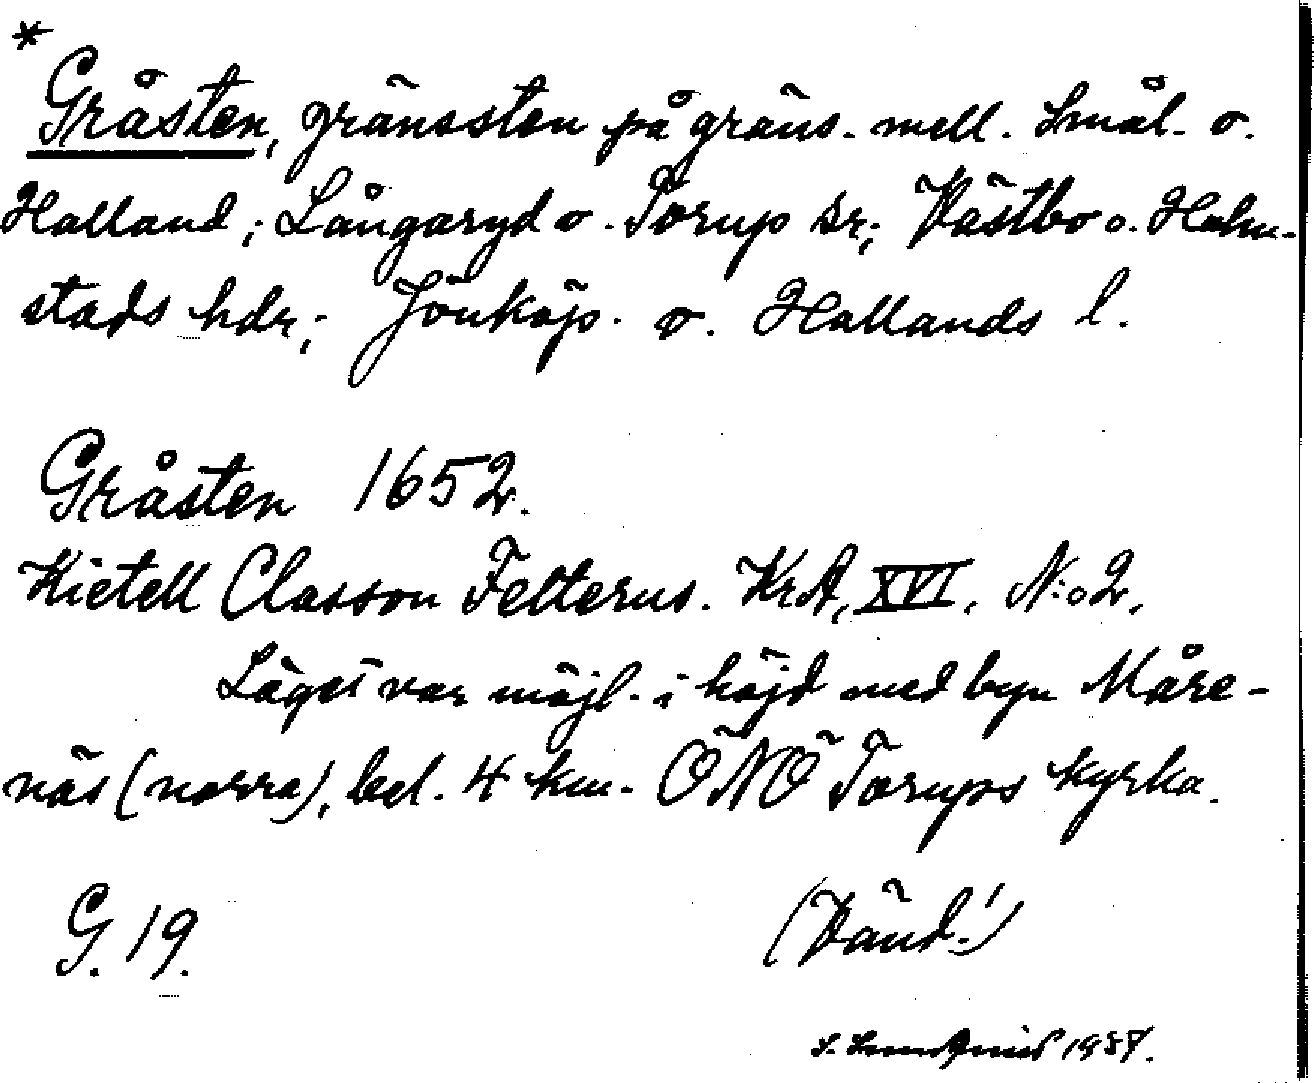 *
Gråsten, gränssten på gräns. mell. Smål. o.
Halland; Långaryd o. Torup sr; Västbo o. Halm-
stads hdr; Jönköp. o. Hallands l.
Gråsten 1652.
Kietell Classon Felterus. KrA, XVI, N:o 2.
Läget var möjl. i höjd med byn Måre-
näs (norra), bel. 4 km. ÖNÖ Torups kyrka.
G. 19.
(Vänd!)
1957.